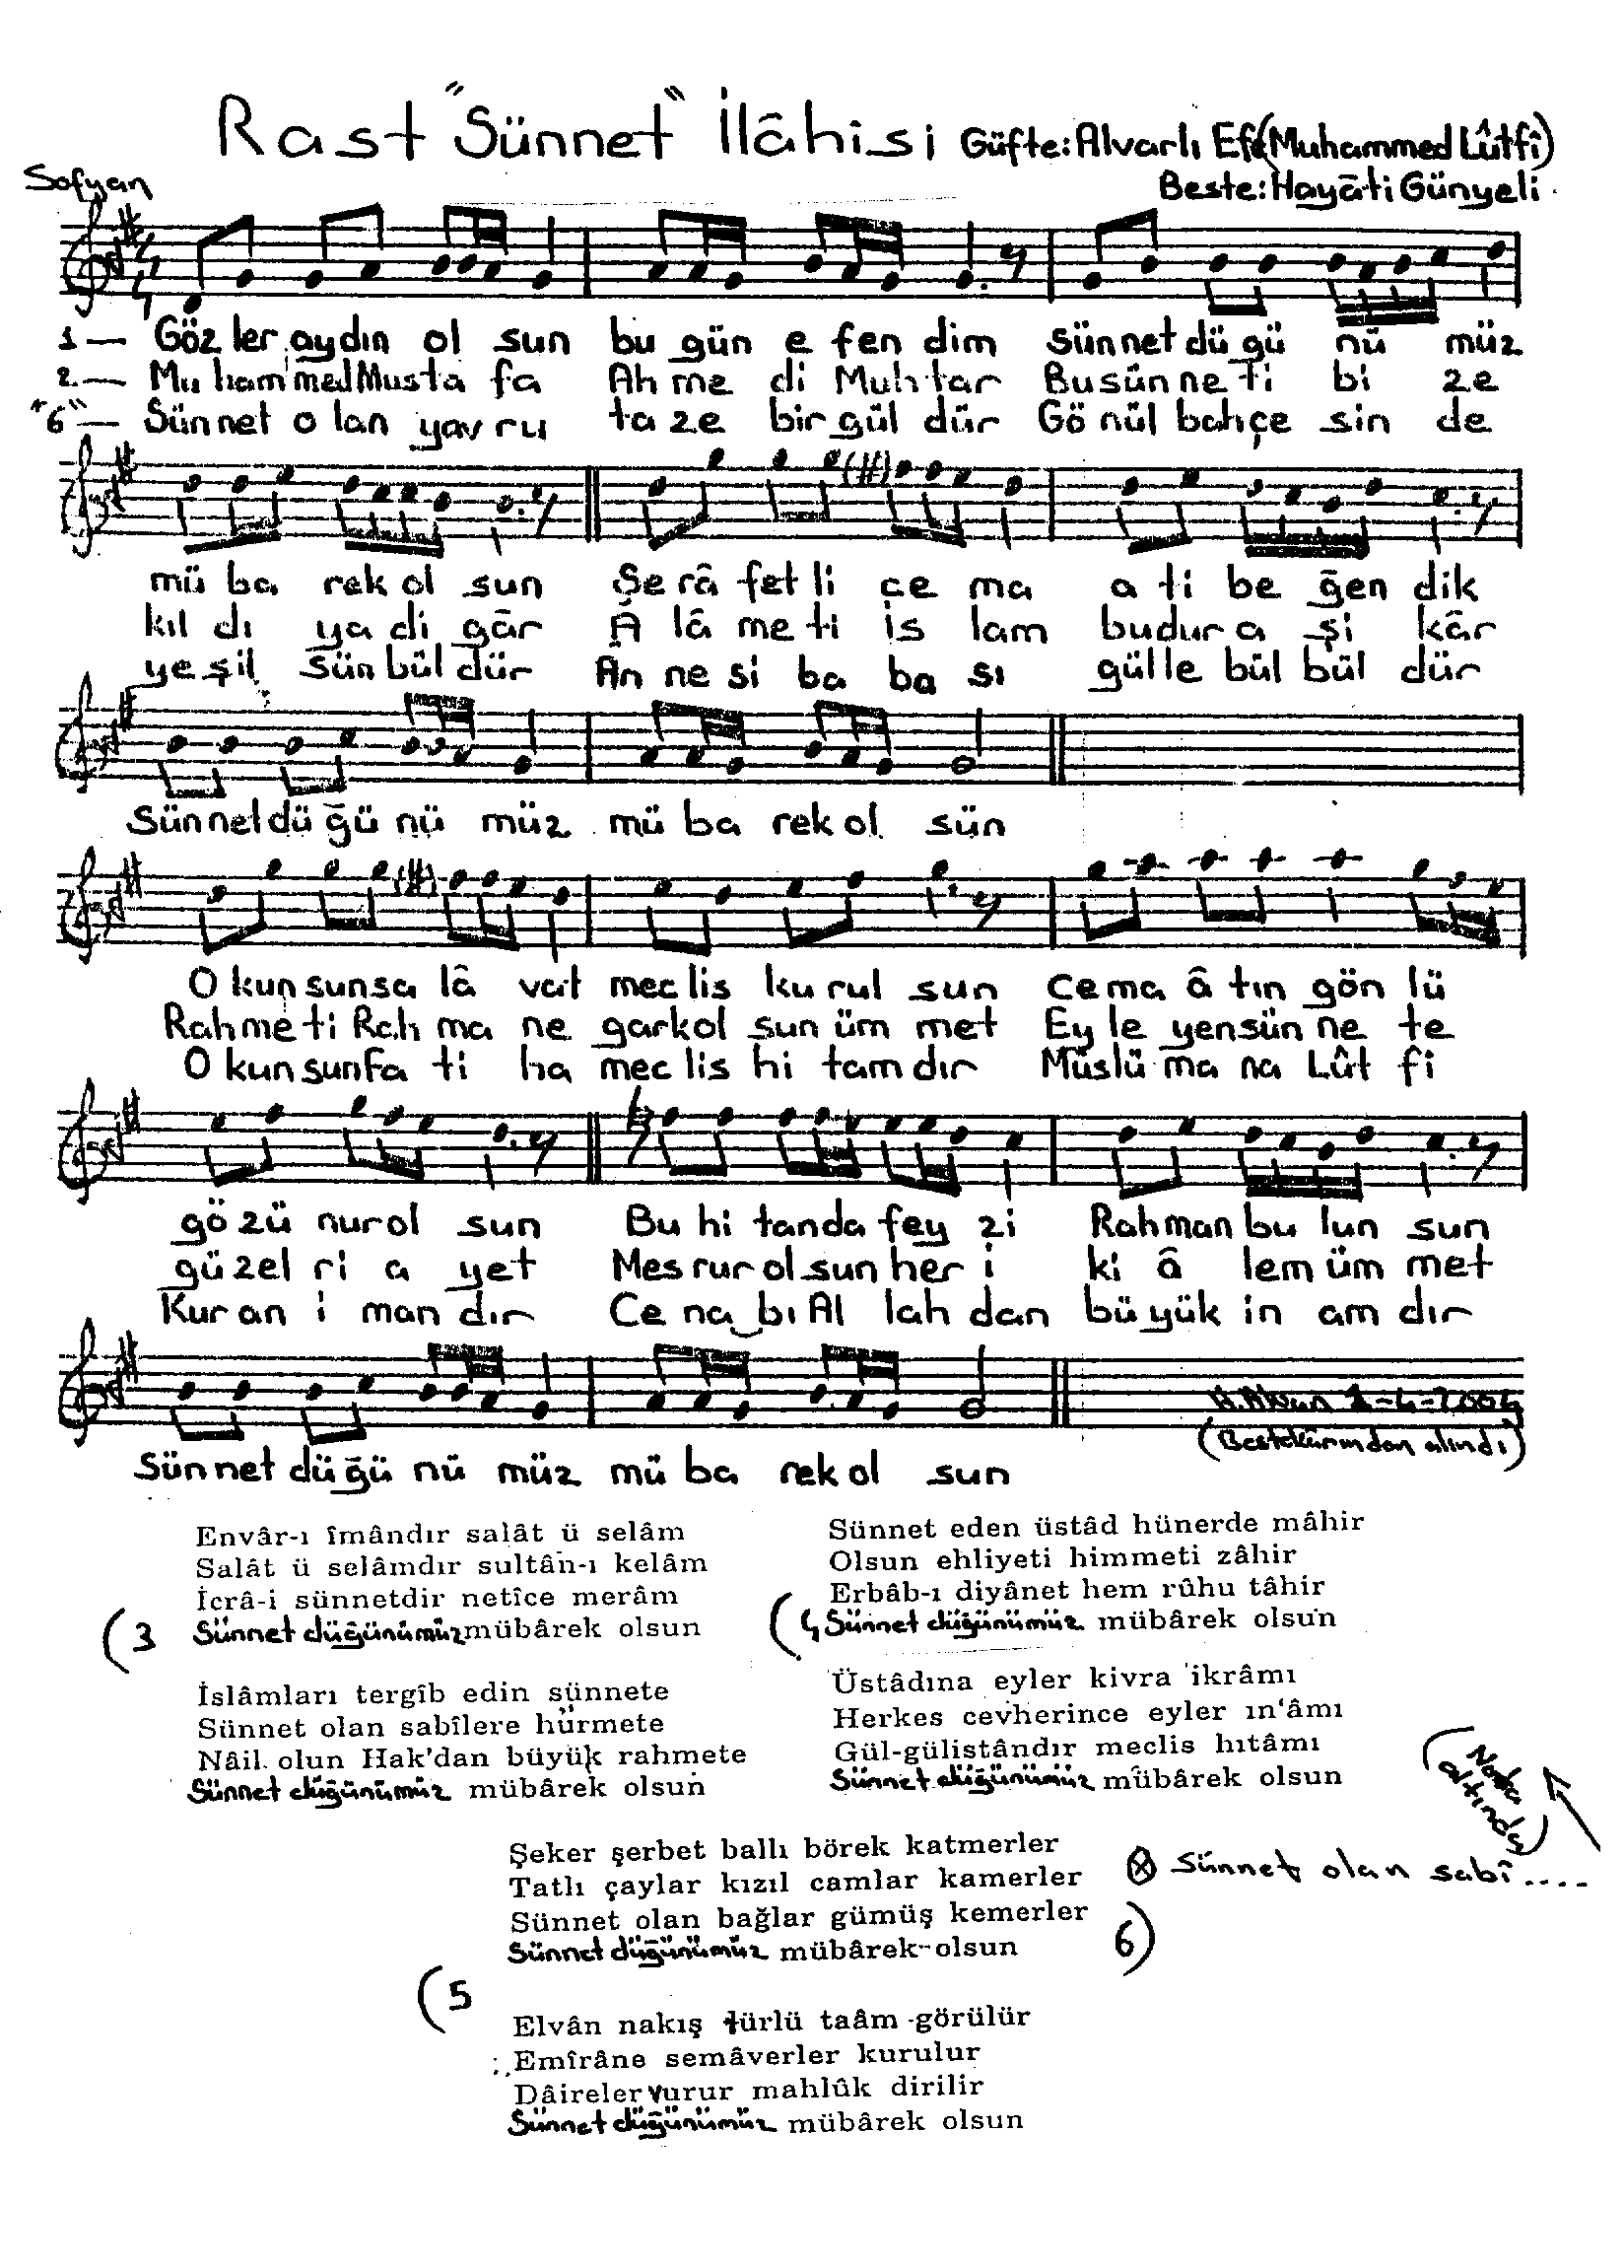 Rast "Sünnet" İlâhisi Güfte: Alvarlı Efe (Muhammed Lûtfî)
Sofyan
Beste: Hayâti Günyeli
1— Göz ler aydın ol sun bu gün e fen dim Sün net dü ğü nü müz
2.— Mu ham med Mus ta fa Ah me di Muh tar Bu sün ne ti bi ze
"6"— Sün net o lan yav ru ta ze bir gül dür Gö nül bahçe sin de
mü ba rek ol sun Şe râ fet li ce ma a ti be ğen dik
kıl dı ya di gâr A lâ me ti is lam budur a şi kâr
ye şil Sün bül dür An ne si ba ba sı gül le bül bül dür
Sün net dü ğü nü müz mü ba rek ol sün
O kun sun sa lâ vat mec lis ku rul sun Ce ma â tın gön lü
Rah me ti Rah ma ne gark ol sun üm met Ey le yen sün ne te
O kun sun Fa ti ha mec lis hi tam dır Müslü ma na Lût fi
gö zü nur ol sun Bu hi tan da fey zi Rahman bu lun sun
gü zel ri a yet Mes rur ol sun her i ki â lem üm met
Kur an i man dır Ce na bı Al lah dan bü yük in am dır
(Bestekârından alındı)
Sün net dü ğü nü müz mü ba rek ol sun
Envâr-ı îmândır salât ü selâm
Salât ü selâmdır sultân-ı kelâm
İcrâ-i sünnetdir netîce merâm
(3 Sünnet düğünümüz mübârek olsun
İslâmları tergîb edin sünnete
Sünnet olan sabîlere hürmete
Nâil olun Hak'dan büyük rahmete
Sünnet düğünümüz mübârek olsun
Sünnet eden üstâd hünerde mâhir
Olsun ehliyeti himmeti zâhir
Erbâb-ı diyânet hem rûhu tâhir
(4 Sünnet düğünümüz mübârek olsun
Üstâdına eyler kivra ikrâmı
Herkes cevherince eyler ın'âmı
Gül-gülistândır meclis hıtâmı
Sünnet düğünümüz mübârek olsun
(Nota altında)
Şeker şerbet ballı börek katmerler
Tatlı çaylar kızıl camlar kamerler
Sünnet olan bağlar gümüş kemerler
Sünnet düğünümüz mübârek olsun
⊗ Sünnet olan sabî....
6)
(5
Elvân nakış türlü taâm görülür
Emîrâne semâverler kurulur
Dâireler vurur mahlûk dirilir
Sünnet düğünümüz mübârek olsun